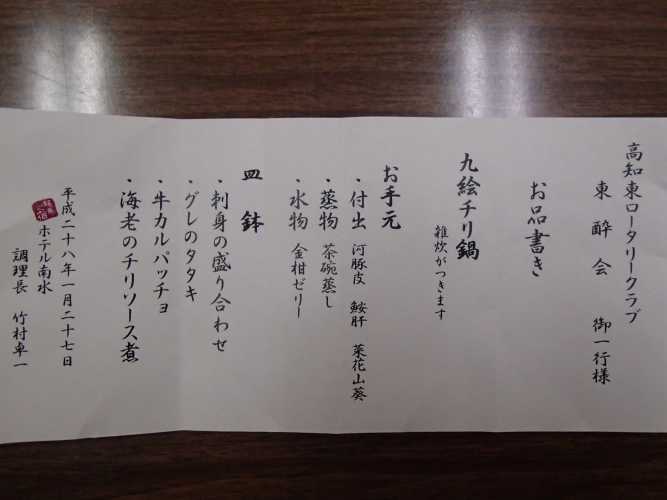 高知東ロータリークラブ
東酔会 御一行様
お品書き
九絵チリ鍋
雑炊がつきます
お手元
・付出 河豚皮 鮟肝 菜花山葵
・蒸物 茶碗蒸し
・水物 金柑ゼリー
皿鉢
・刺身の盛り合わせ
・グレのタタキ
・牛カルパッチョ
・海老のチリソース煮
平成二十八年一月二十七日
ホテル南水
調理長 竹村卓一